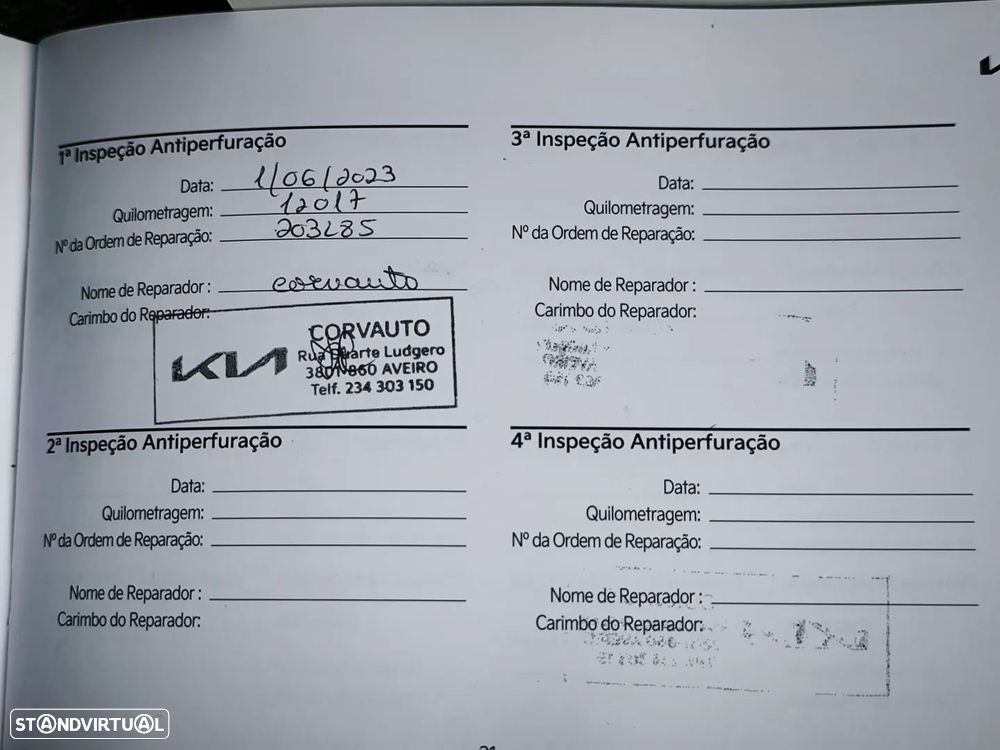 1ª Inspeção Antiperfuração
Data: 1/06/2023
Quilometragem: 12017
Nº da Ordem de Reparação: 203285
Nome de Reparador : corvauto
Carimbo do Reparador:
KIA
CORVAUTO
Rua Duarte Ludgero
3801-860 AVEIRO
Telf. 234 303 150
2ª Inspeção Antiperfuração
Data:
Quilometragem:
Nº da Ordem de Reparação:
Nome de Reparador :
Carimbo do Reparador:
3ª Inspeção Antiperfuração
Data:
Quilometragem:
Nº da Ordem de Reparação:
Nome de Reparador :
Carimbo do Reparador:
4ª Inspeção Antiperfuração
Data:
Quilometragem:
Nº da Ordem de Reparação:
Nome de Reparador :
Carimbo do Reparador:
STANDVIRTUAL